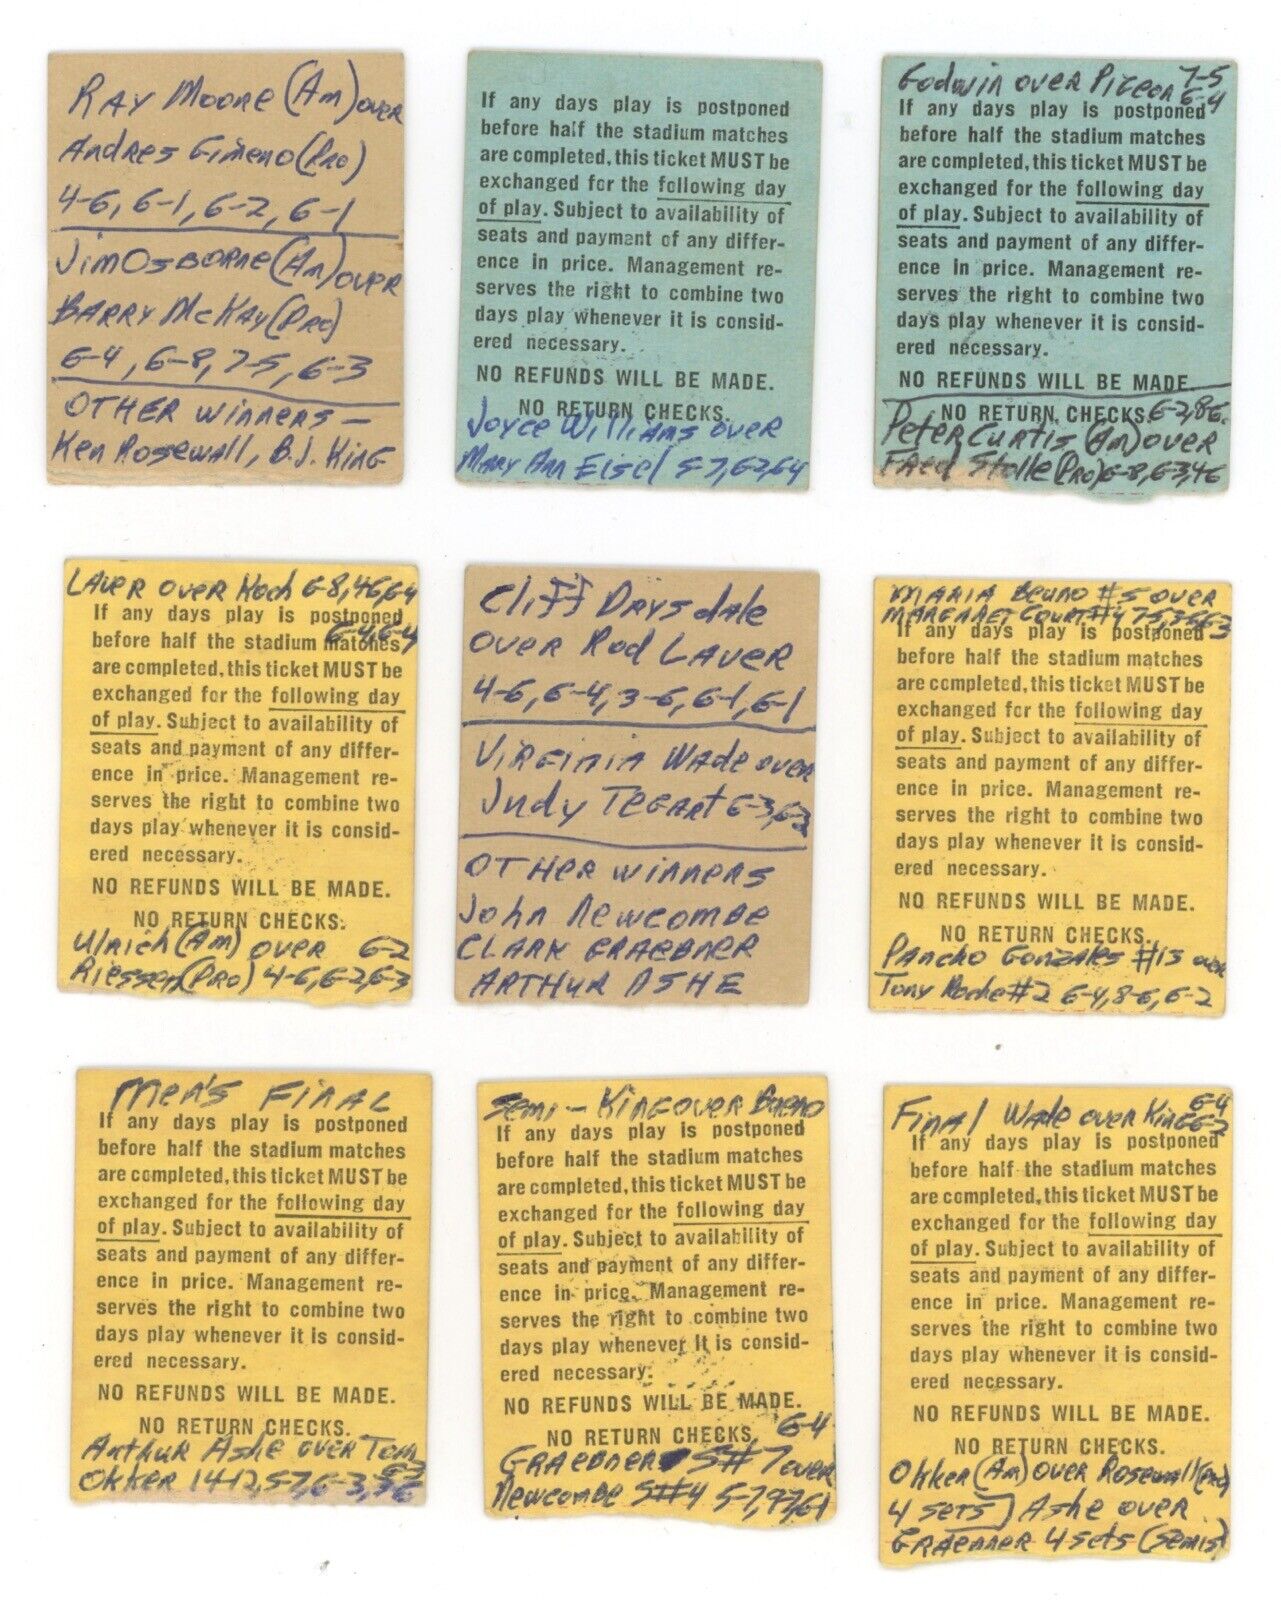 RAY MOORE (Am) OVER
Andres Gimeno (Pro)
4-6, 6-1, 6-2, 6-1
Jim Osborne (Am) over
BARRY McKAY (Pro)
6-4, 6-8, 7-5, 6-3
OTHER WINNERS -
Ken Rosewall, B.J. King
If any days play is postponed
before half the stadium matches
are completed, this ticket MUST be
exchanged for the following day
of play. Subject to availability of
seats and payment of any differ-
ence in price. Management re-
serves the right to combine two
days play whenever it is consid-
ered necessary.
NO REFUNDS WILL BE MADE.
NO RETURN CHECKS.
Joyce Williams over
Mary Ann Eisel 5-7, 6-2, 6-4
Godwin over Pigeon 7-5
6-4
If any days play is postponed
before half the stadium matches
are completed, this ticket MUST be
exchanged for the following day
of play. Subject to availability of
seats and payment of any differ-
ence in price. Management re-
serves the right to combine two
days play whenever it is consid-
ered necessary.
NO REFUNDS WILL BE MADE.
NO RETURN CHECKS. 6-2, 8-6.
Peter Curtis (Am) over
Fred Stolle (Pro) 6-8, 6-3, 4-6
LAVER over Koch 6-8, 4-6, 6-4
6-4, 6-4
If any days play is postponed
before half the stadium matches
are completed, this ticket MUST be
exchanged for the following day
of play. Subject to availability of
seats and payment of any differ-
ence in price. Management re-
serves the right to combine two
days play whenever it is consid-
ered necessary.
NO REFUNDS WILL BE MADE.
NO RETURN CHECKS.
Ulrich (Am) over 6-2
Riessen (Pro) 4-6, 6-2, 6-3
Cliff Drysdale
over Rod LAVER
4-6, 6-4, 3-6, 6-1, 6-1
Virginia Wade over
Judy Tegart 6-3, 6-2
OTHER WINNERS
John Newcombe
CLARK GRAEBNER
ARTHUR ASHE
MARIA Bueno #5 over
MARGARET COURT #4 7-5, 3-6, 6-3
If any days play is postponed
before half the stadium matches
are completed, this ticket MUST be
exchanged for the following day
of play. Subject to availability of
seats and payment of any differ-
ence in price. Management re-
serves the right to combine two
days play whenever it is consid-
ered necessary.
NO REFUNDS WILL BE MADE.
NO RETURN CHECKS.
Pancho Gonzales #13 over
Tony Roche #2 6-4, 8-6, 6-2
Men's FINAL
If any days play is postponed
before half the stadium matches
are completed, this ticket MUST be
exchanged for the following day
of play. Subject to availability of
seats and payment of any differ-
ence in price. Management re-
serves the right to combine two
days play whenever it is consid-
ered necessary.
NO REFUNDS WILL BE MADE.
NO RETURN CHECKS.
Arthur Ashe over Tom
Okker 14-12, 5-7, 6-3, 3-6
Semi - King over Bueno
If any days play is postponed
before half the stadium matches
are completed, this ticket MUST be
exchanged for the following day
of play. Subject to availability of
seats and payment of any differ-
ence in price. Management re-
serves the right to combine two
days play whenever it is consid-
ered necessary.
NO REFUNDS WILL BE MADE.
NO RETURN CHECKS. 6-4
GRAEBNER S#7 over
Newcombe S#4 5-7, 9-7, 6-1
6-4
Final Wade over King 6-2
If any days play is postponed
before half the stadium matches
are completed, this ticket MUST be
exchanged for the following day
of play. Subject to availability of
seats and payment of any differ-
ence in price. Management re-
serves the right to combine two
days play whenever it is consid-
ered necessary.
NO REFUNDS WILL BE MADE.
NO RETURN CHECKS.
Okker (Am) over Rosewall (Pro)
4 sets] Ashe over
Graebner 4 sets (semis)